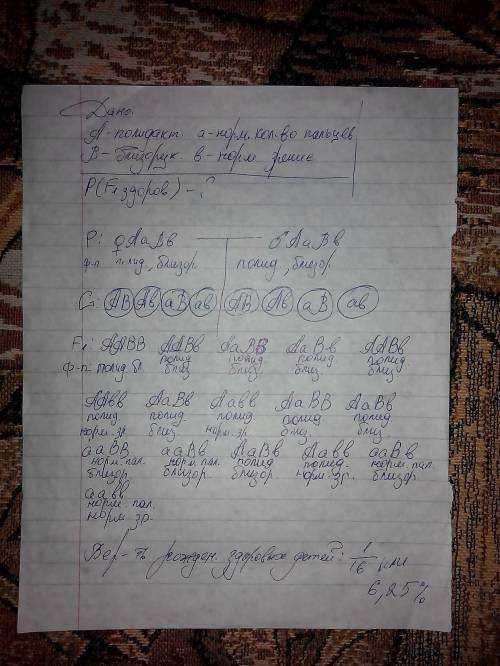 Дано:
А-полидакт. а-норм. кол-во пальцев
В-близорук. в-норм зрение
P(F₁ здоров) - ?
P: ♀ АаВв — ♂ АаВв
ф-п полид, близор полид, близор
G: АВ Ав аВ ав АВ Ав аВ ав
F₁: ААВВ ААВв АаВВ АаВв ААВв
ф-п: полид. бл. полид полид полид полид
близ близ близ близ
ААвв АаВв Аавв АаВВ АаВв
полид. полид. полид полид. полид
норм. зр. близ норм. зр. близ. близ
ааВВ ааВв АаВв Аавв ааВв
норм. пал. норм. пал. полид полид. норм. пал.
близор близор. близор норм. зр. близор.
аавв
норм. пал.
норм. зр.
Вер-ть рожден. здоровых детей: 1/16 или
6,25%